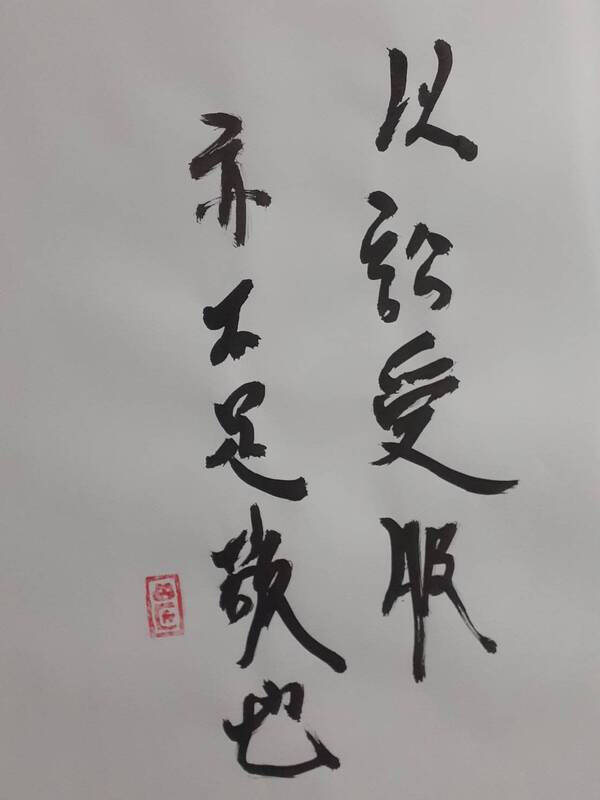 以訟受服
亦不足敬也